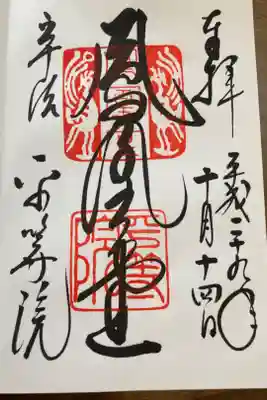 奉拝
平成二十九年
十月十四日
鳳凰堂
宇治
平等院